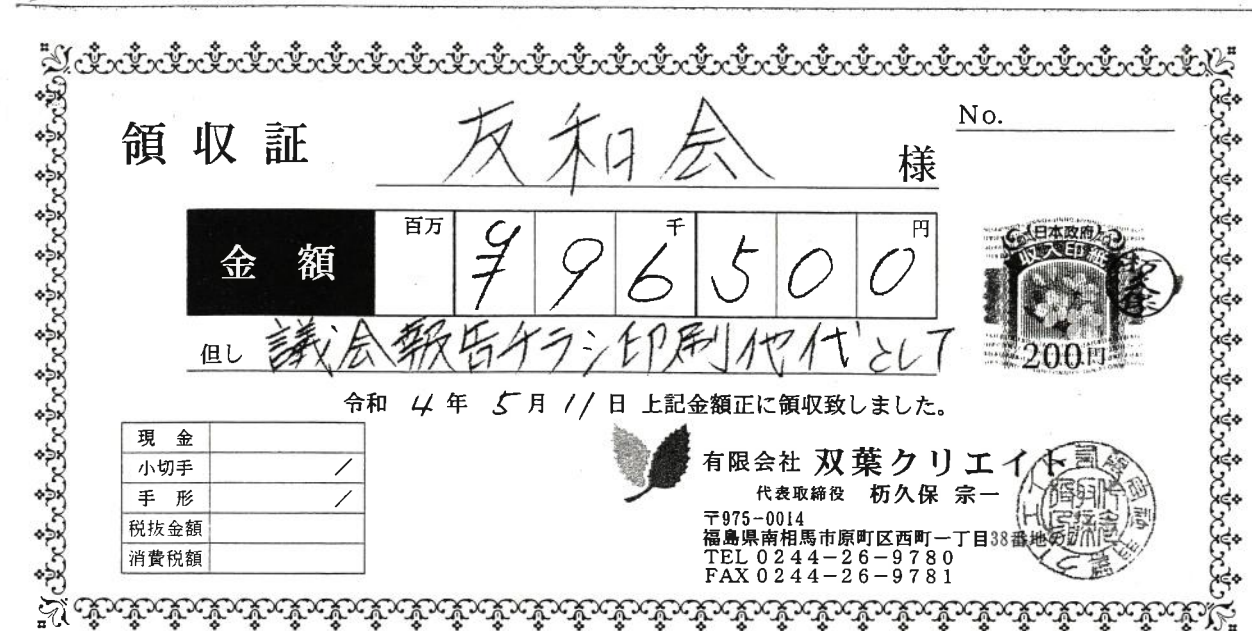 領収証 友和会 様
No.
金額 百万 ¥96千500円
但し 議会報告チラシ印刷代として
令和 4年 5月 11日 上記金額正に領収致しました。
日本政府
収入印紙
200円
現金
小切手 /
手形 /
税抜金額
消費税額
有限会社 双葉クリエイト
代表取締役 枥久保 宗一
〒975-0014
福島県南相馬市原町区西町一丁目38番地の
TEL 0244-26-9780
FAX 0244-26-9781